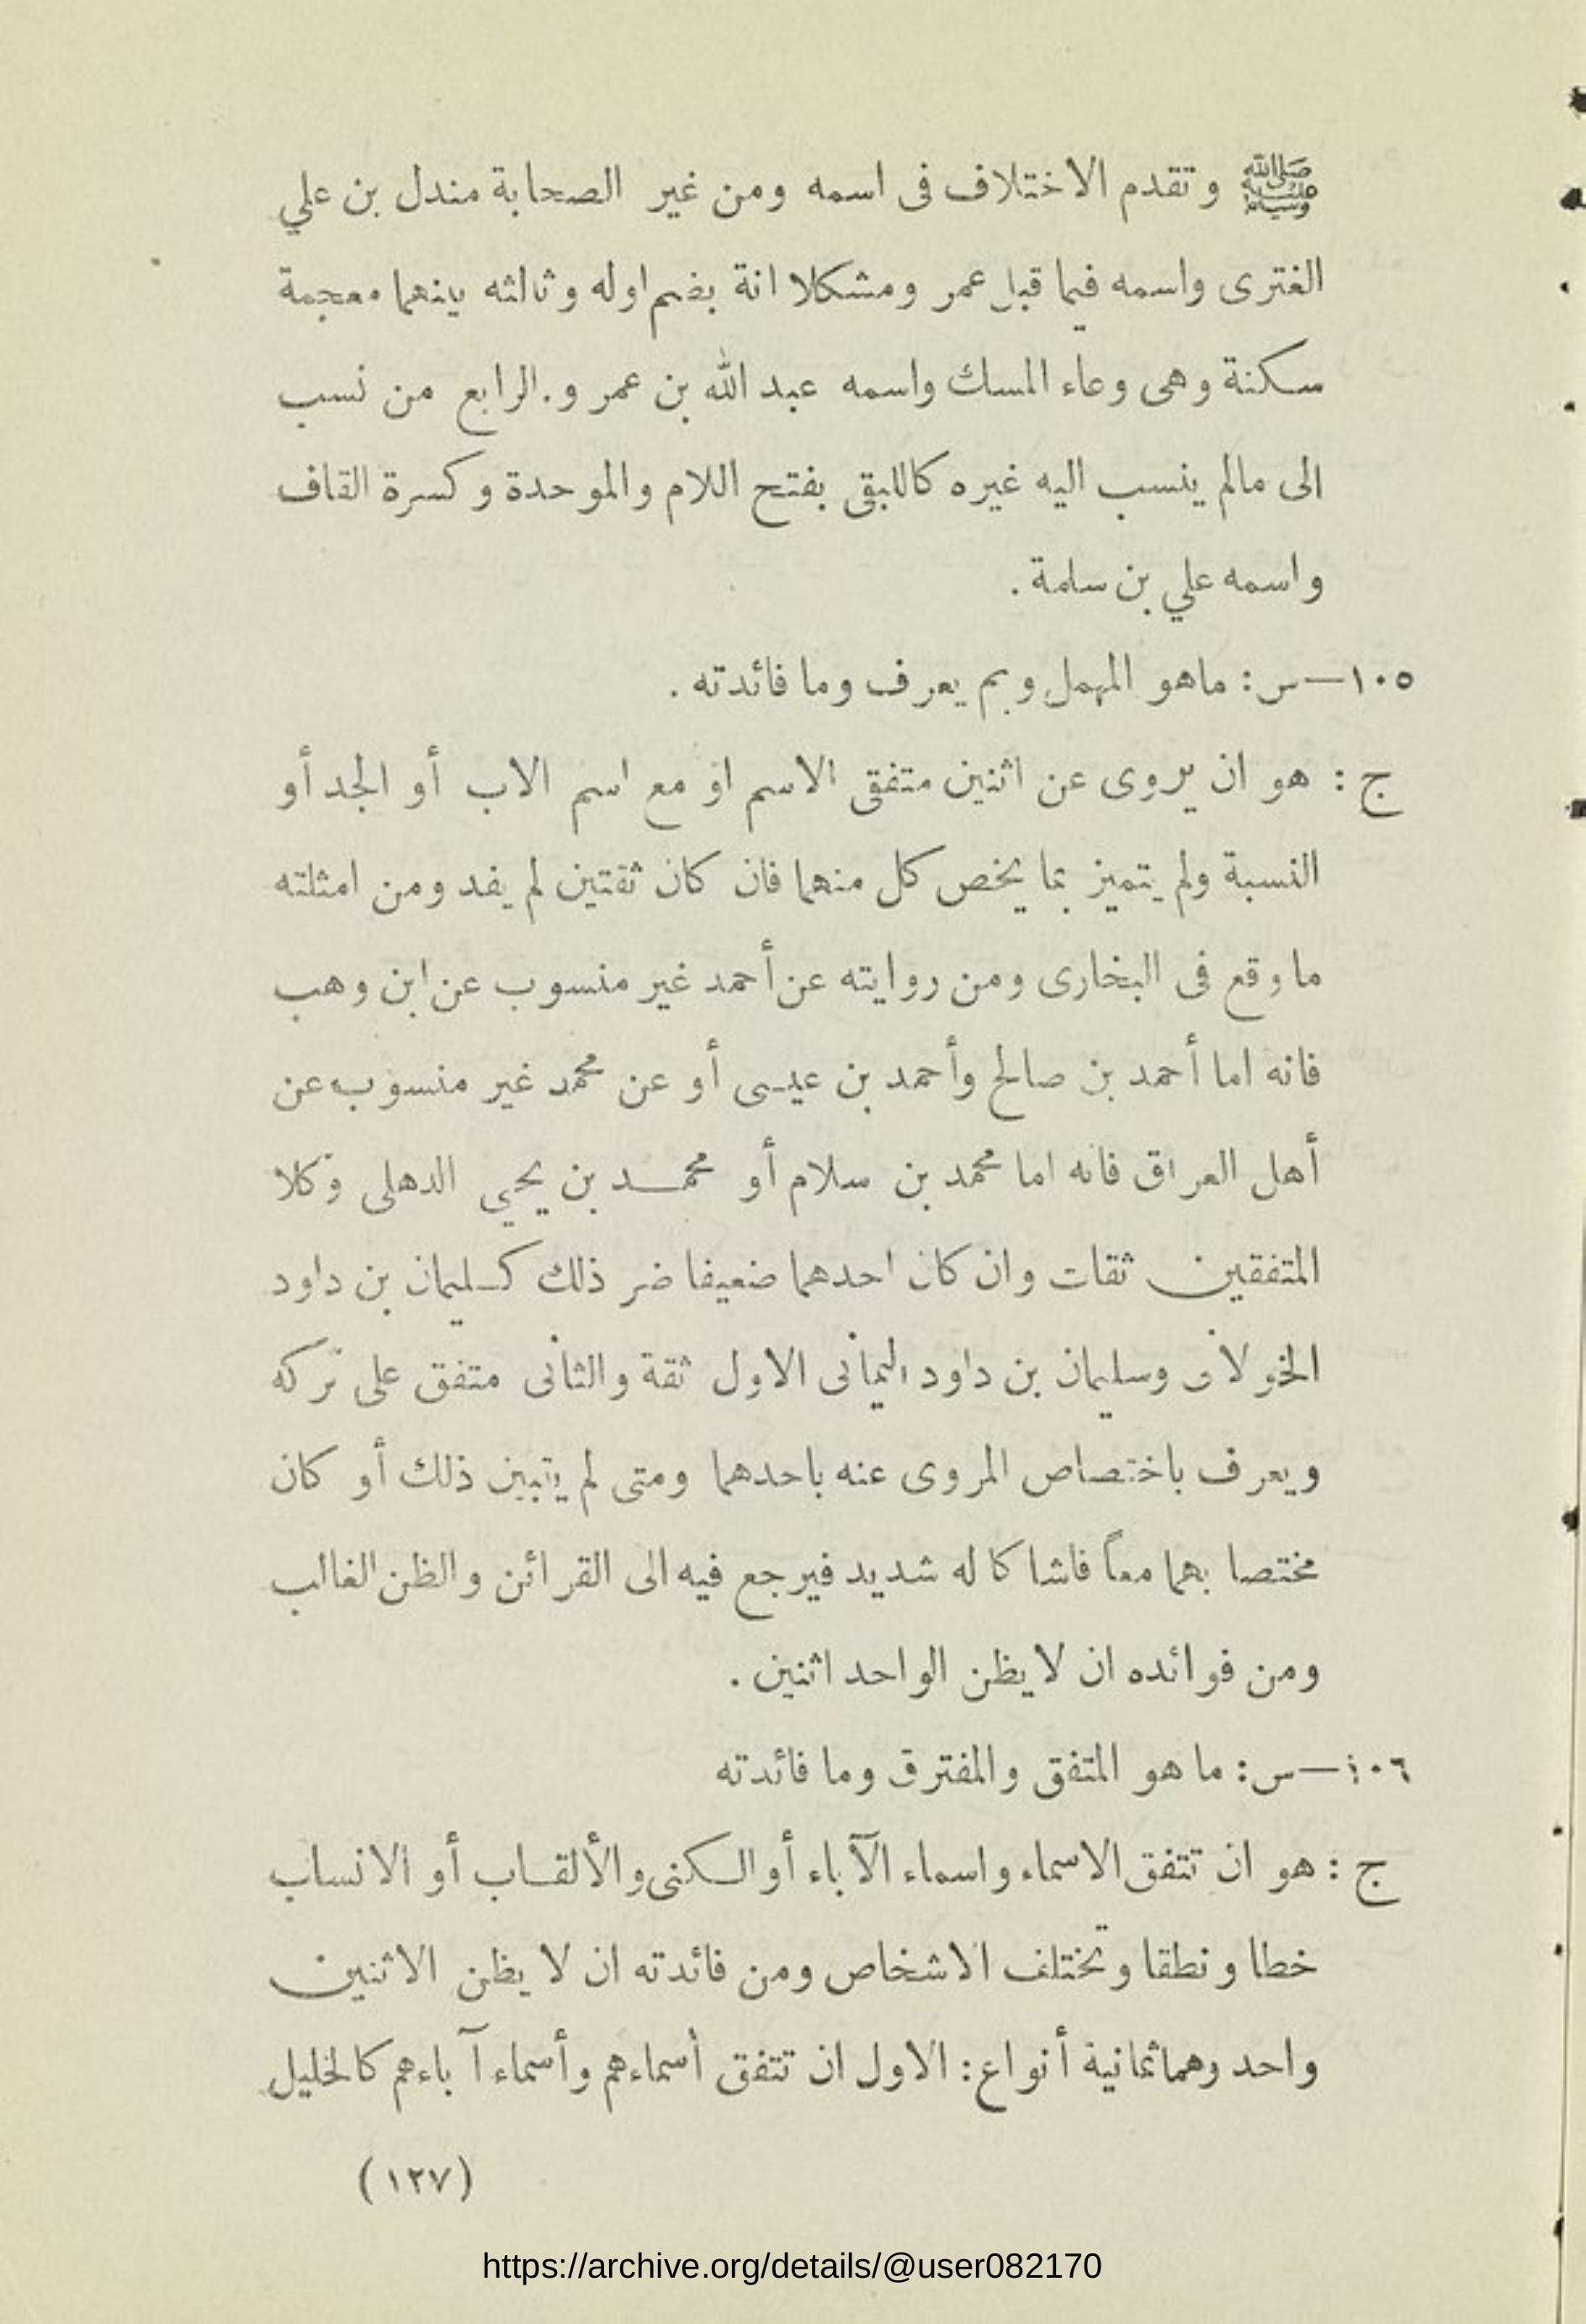 ﷺ وتقدم الاختلاف فى اسمه ومن غير الصحابة مندل بن علي
الغترى واسمه فيما قبل عمر ومشكلا انة بضم اوله وثالثه بينهما معجمة
سكنة وهى وعاء المسك واسمه عبد الله بن عمر و. الرابع من نسب
الى مالم ينسب اليه غيره كاللبقى بفتح اللام والموحدة وكسرة القاف
واسمه علي بن سلمة .
١٠٥—س: ماهو المهمل وبم يعرف وما فائدته .
ج : هو ان يروى عن اثنين متفقى الاسم او مع اسم الاب أو الجد أو
النسبة ولم يتميز بما يخص كل منهما فان كان ثقتين لم يفد ومن امثلته
ما وقع فى البخارى ومن روايته عن أحمد غير منسوب عن ابن وهب
فانه اما أحمد بن صالح وأحمد بن عيسى أو عن محمد غير منسوب عن
أهل العراق فانه اما محمد بن سلام أو محمد بن يحيي الدهلى وكلا
المتفقين ثقات وان كان احدهما ضعيفا ضر ذلك كسليمان بن داود
الخولانى وسليمان بن داود اليمانى الاول ثقة والثانى متفق على تركه
ويعرف باختصاص المروى عنه باحدهما ومتى لم يتبين ذلك أو كان
مختصا بهما معاً فاشا كا له شديد فيرجع فيه الى القرائن والظن الغالب
ومن فوائده ان لا يظن الواحد اثنين .
١٠٦—س: ما هو المتفق والمفترق وما فائدته
ج : هو ان تتفق الاسماء واسماء الآباء أو الكنى والألقاب أو الانساب
خطا ونطقا وتختلف الاشخاص ومن فائدته ان لا يظن الاثنين
واحد وهماثمانية أنواع: الاول ان تتفق أسماءهم وأسماء آباءهم كالخليل
(١٢٧)
https://archive.org/details/@user082170